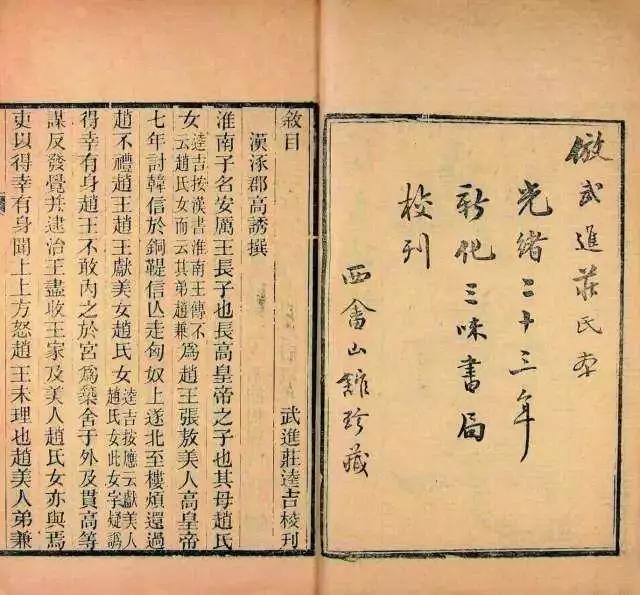 倣武進莊氏本
光緒二十三年
新化三味書局
校刊
西畬山館珍藏
敘目
武進莊逵吉校刊
漢涿郡高誘撰
淮南子名安厲王長子也長高皇帝之子也其母趙氏
女逵吉按漢書淮南王傳不云趙氏女而云其弟趙兼為趙王張敖美人高皇帝
七年討韓信於銅鞮信亡走匈奴上遂北至樓煩還過
趙不禮趙王趙王獻美女趙氏女逵吉按應云獻美人趙氏女此女字疑譌
得幸有身趙王不敢內之於宮為築舍于外及貫高等
謀反發覺并逮治王盡收王家及美人趙氏女亦與焉
吏以得幸有身聞上上方怒趙王未理也趙美人弟兼